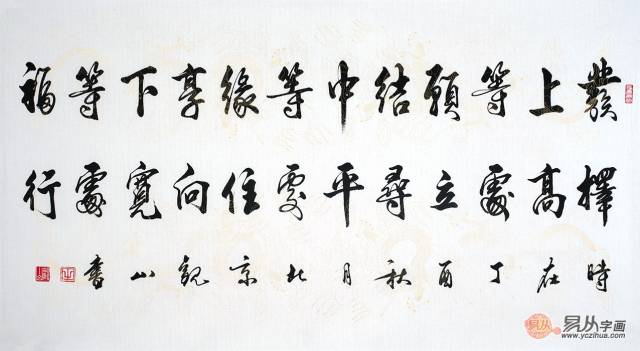 發上等願結中等緣享下等福
擇高處立尋平處住向寬處行
時在丁酉秋月北京觀山書
易从字画
www.yczihua.com